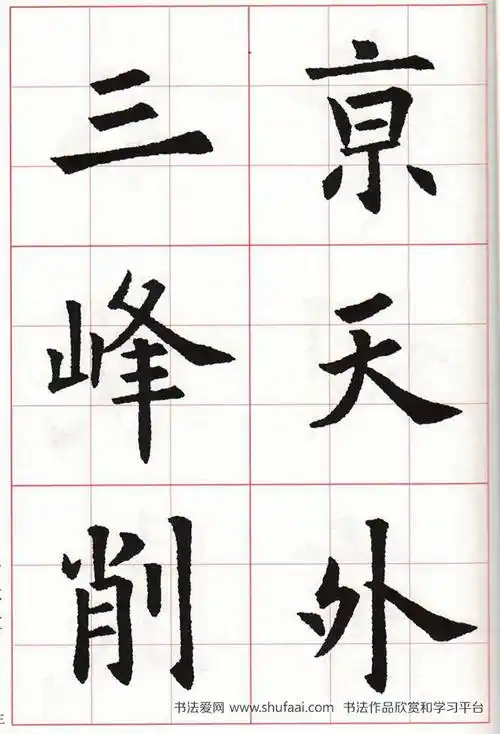 京天外
三峰削
三
书法爱网 www.shufaai.com 书法作品欣赏和学习平台